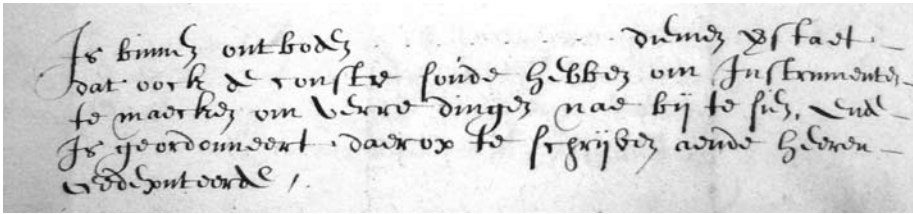 Is binnen ontboden . . . . . . . . . . diemen verstaet
dat oock de conste soude hebben om Instrumenten
te maecken om verre dingen nae bij te sien, ende
Is geordonneert daerop te schrijven aende heeren
Gedeputeerde /